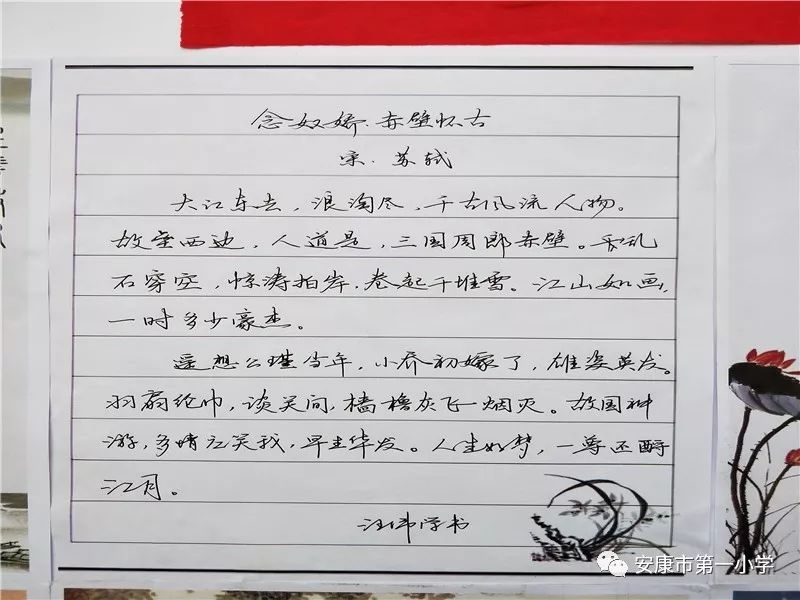 念奴娇·赤壁怀古
宋·苏轼
大江东去，浪淘尽，千古风流人物。
故垒西边，人道是，三国周郎赤壁。乱
石穿空，惊涛拍岸，卷起千堆雪。江山如画，
一时多少豪杰。
遥想公瑾当年，小乔初嫁了，雄姿英发。
羽扇纶巾，谈笑间，樯橹灰飞烟灭。故国神
游，多情应笑我，早生华发。人生如梦，一尊还酹
江月。
汪伟学书
安康市第一小学